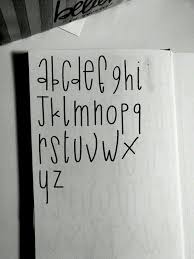 abcdefghi
Jklmnopq
rstuvwx
yz